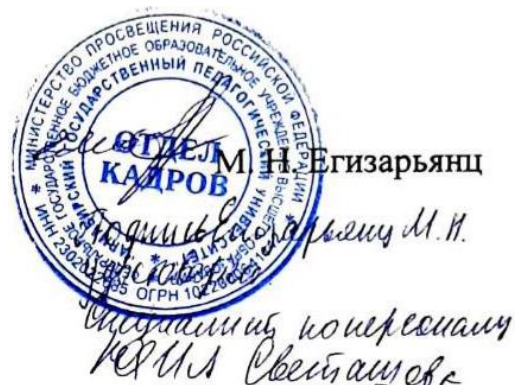 МИНИСТЕРСТВО ПРОСВЕЩЕНИЯ РОССИЙСКОЙ ФЕДЕРАЦИИ
ГОСУДАРСТВЕННОЕ БЮДЖЕТНОЕ ОБРАЗОВАТЕЛЬНОЕ УЧРЕЖДЕНИЕ
ГОСУДАРСТВЕННЫЙ ПЕДАГОГИЧЕСКИЙ УНИВЕРСИТЕТ
ОТДЕЛ
КАДРОВ
М. Н. Егизарьянц
ОГРН
Подпись Егизарьянц М.Н.
Специалист по персоналу